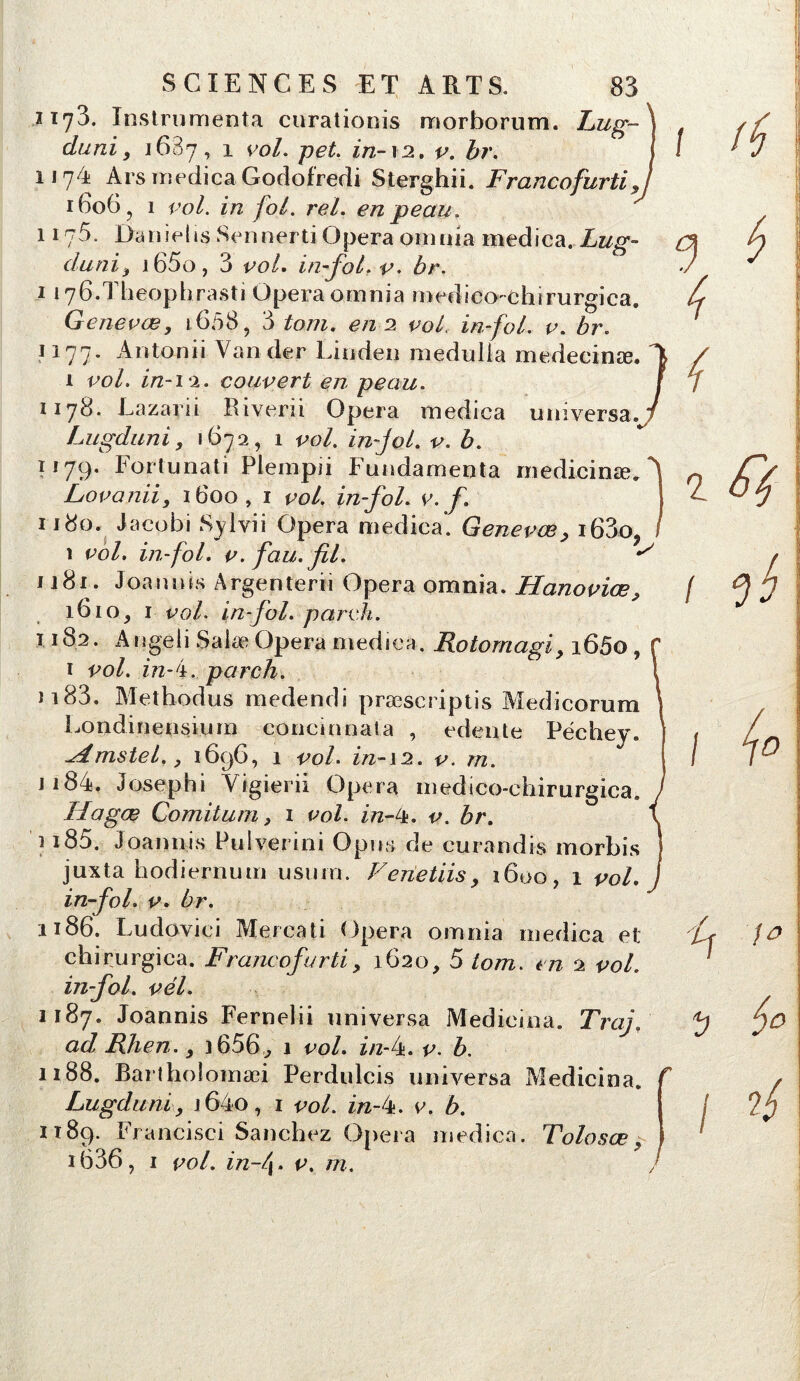 SCIENCES ET ARTS. 83
1173. Instrumenta curationis morborum. Lug-
duni, 1637, 1 vol. pet. in-12. v. br.
1 15
1174 Ars medica Godofredi Sterghii. Francofurti,
1606, 1 vol. in fol. rel. en peau.
1175. Danielis Sennerti Opera omnia medica. Lug-
duni, 1650, 3 vol. in-fol. v. br.
9 5
1176. Theophrasti Opera omnia medico-chirurgica.
Genevæ, 1658, 3 tom. en 2 vol. in-fol. v. br.
4
1177. Antonii Vander Linden medulla medecinæ.
1 vol. in-12. couvert en peau.
4
1178. Lazarii Riverii Opera medica universa.
Lugduni, 1672, 1 vol. in-fol. v. b.
1179. Fortunati Plempii Fundamenta medicinæ.
Lovanii, 1600, 1 vol. in-fol. v. f.
2
1180. Jacobi Sylvii Opera medica. Genevæ, 1630,
1 vol. in-fol. v. fau. fil.
1181. Joannis Argenterii Opera omnia. Hanoviæ,
1610, 1 vol. in-fol. parch.
1 95
1182. Angeli Salæ Opera medica. Rotomagi, 1650,
1 vol. in-4. parch.
1183. Methodus medendi præscriptis Medicorum
Londinensium concinnata , edente Péchey.
Amstel., 1696, 1 vol. in-12. v. m.
1 40
1184. Josephi Vigierii Opera medico-chirurgica.
Hagæ Comitum, 1 vol. in-4. v. br.
1185. Joannis Pulverini Opus de curandis morbis
juxta hodiernum usum. Venetiis, 1600, 1 vol.
in-fol. v. br.
1186. Ludovici Mercati Opera omnia medica et
chirurgica. Francofurti, 1620, 5 tom. en 2 vol.
in-fol. vél.
4 10
1187. Joannis Fernelii universa Medicina. Traj.
ad Rhen., 1656, 1 vol. in-4. v. b.
50
1188. Bartholomæi Perdulcis universa Medicina.
Lugduni, 1640, 1 vol. in-4. v. b.
1 25
1189. Francisci Sanchez Opera medica. Tolosæ,
1636, 1 vol. in-4. v. m.